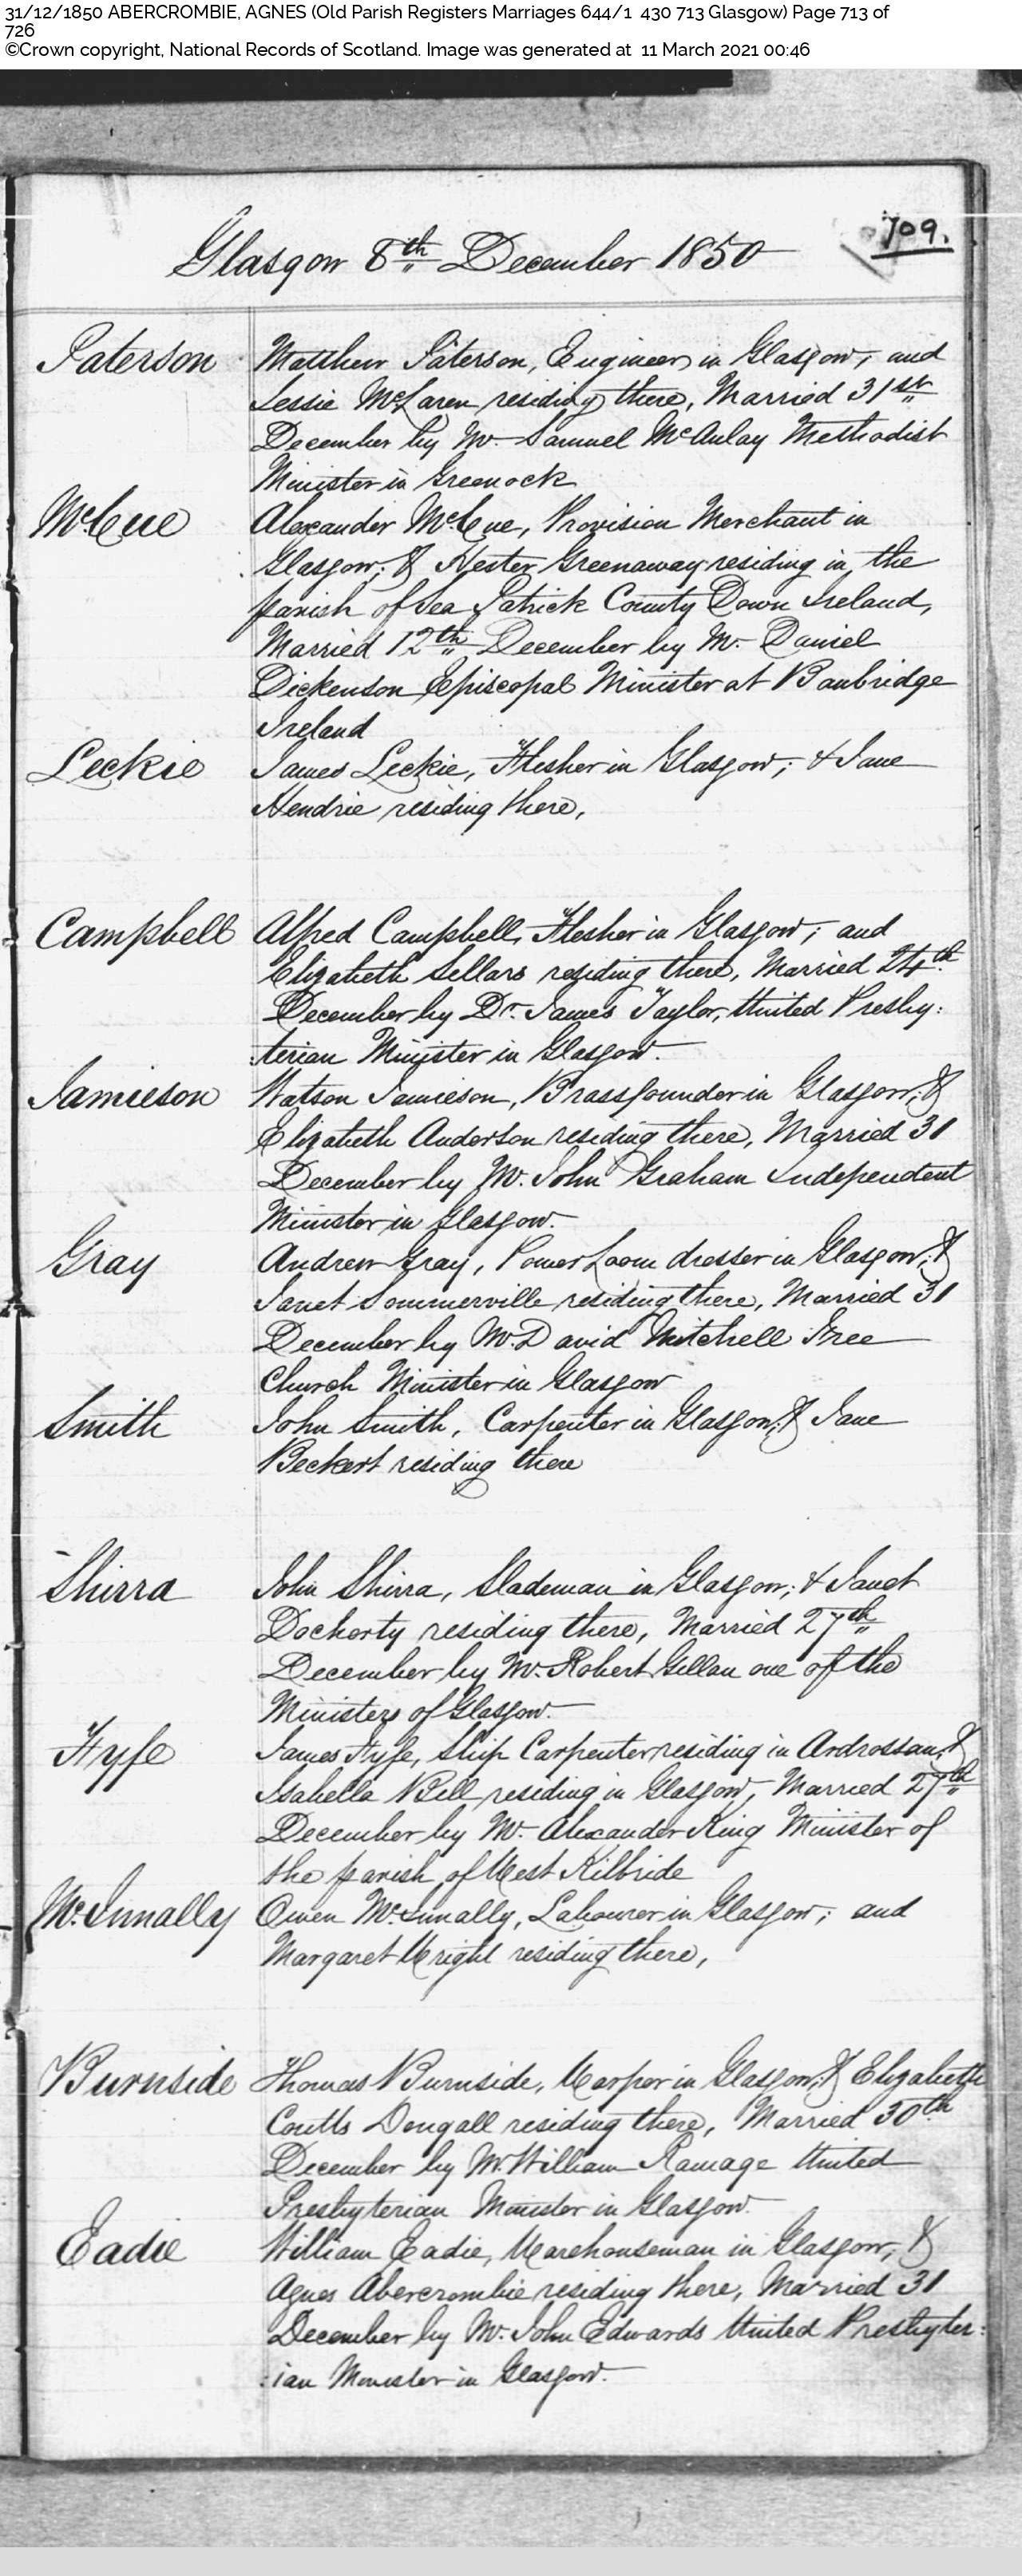 31/12/1850 ABERCROMBIE, AGNES (Old Parish Registers Marriages 644/1 430 713 Glasgow) Page 713 of
726
©Crown copyright, National Records of Scotland. Image was generated at 11 March 2021 00:46
709.
Glasgow 8th December 1850
Paterson
Matthew Paterson, Engineer in Glasgow, and
Jessie McLaren residing there, Married 31st
December by Mr. Samuel McAulay Methodist
Minister in Greenock
McCue
Alexander McCue, Provision Merchant in
Glasgow; & Hester Greenaway residing in the
parish of Sea Patrick County Down Ireland,
Married 12th December by Mr. Daniel
Dickenson Episcopal Minister at Banbridge
Ireland
Leckie
James Leckie, Flesher in Glasgow; & Jane
Hendrie residing there,
Campbell
Alfred Campbell, Flesher in Glasgow; and
Elizabeth Sellars residing there, Married 24th
December by Dr. James Taylor, United Presby:
:terian Minister in Glasgow.
Jamieson
Watson Jamieson, Brassfounder in Glasgow; &
Elizabeth Anderson residing there, Married 31
December by Mr. John Graham Independent
Minister in Glasgow.
Gray
Andrew Gray, Power Loom dresser in Glasgow; &
Janet Sommerville residing there, Married 31
December by Mr. David Mitchell Free
Church Minister in Glasgow
Smith
John Smith, Carpenter in Glasgow; & Jane
Beckert residing there
Shirra
John Shirra, Slademan in Glasgow; & Janet
Docherty residing there, Married 27th
December by Mr. Robert Gillan one of the
Ministers of Glasgow.
Fyfe
James Fyfe, Ship Carpenter residing in Ardrossan, &
Isabella Bell residing in Glasgow, Married 27th
December by Mr. Alexander King Minister of
the parish of West Kilbride
McInnally
Owen McInnally, Labourer in Glasgow; and
Margaret Wright residing there,
Burnside
Thomas Burnside, Warper in Glasgow; & Elizabeth
Coutts Dougall residing there, Married 30th
December by Mr. William Ramage United
Presbyterian Minister in Glasgow.
Eadie
William Eadie, Warehouseman in Glasgow; &
Agnes Abercrombie residing there, Married 31
December by Mr. John Edwards United Presbyter:
:ian Minister in Glasgow.